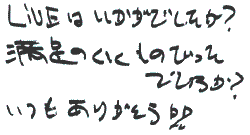 LiVEはいかがでしたか?
満足のいくものだって
でしょうか?
いつもありがとう